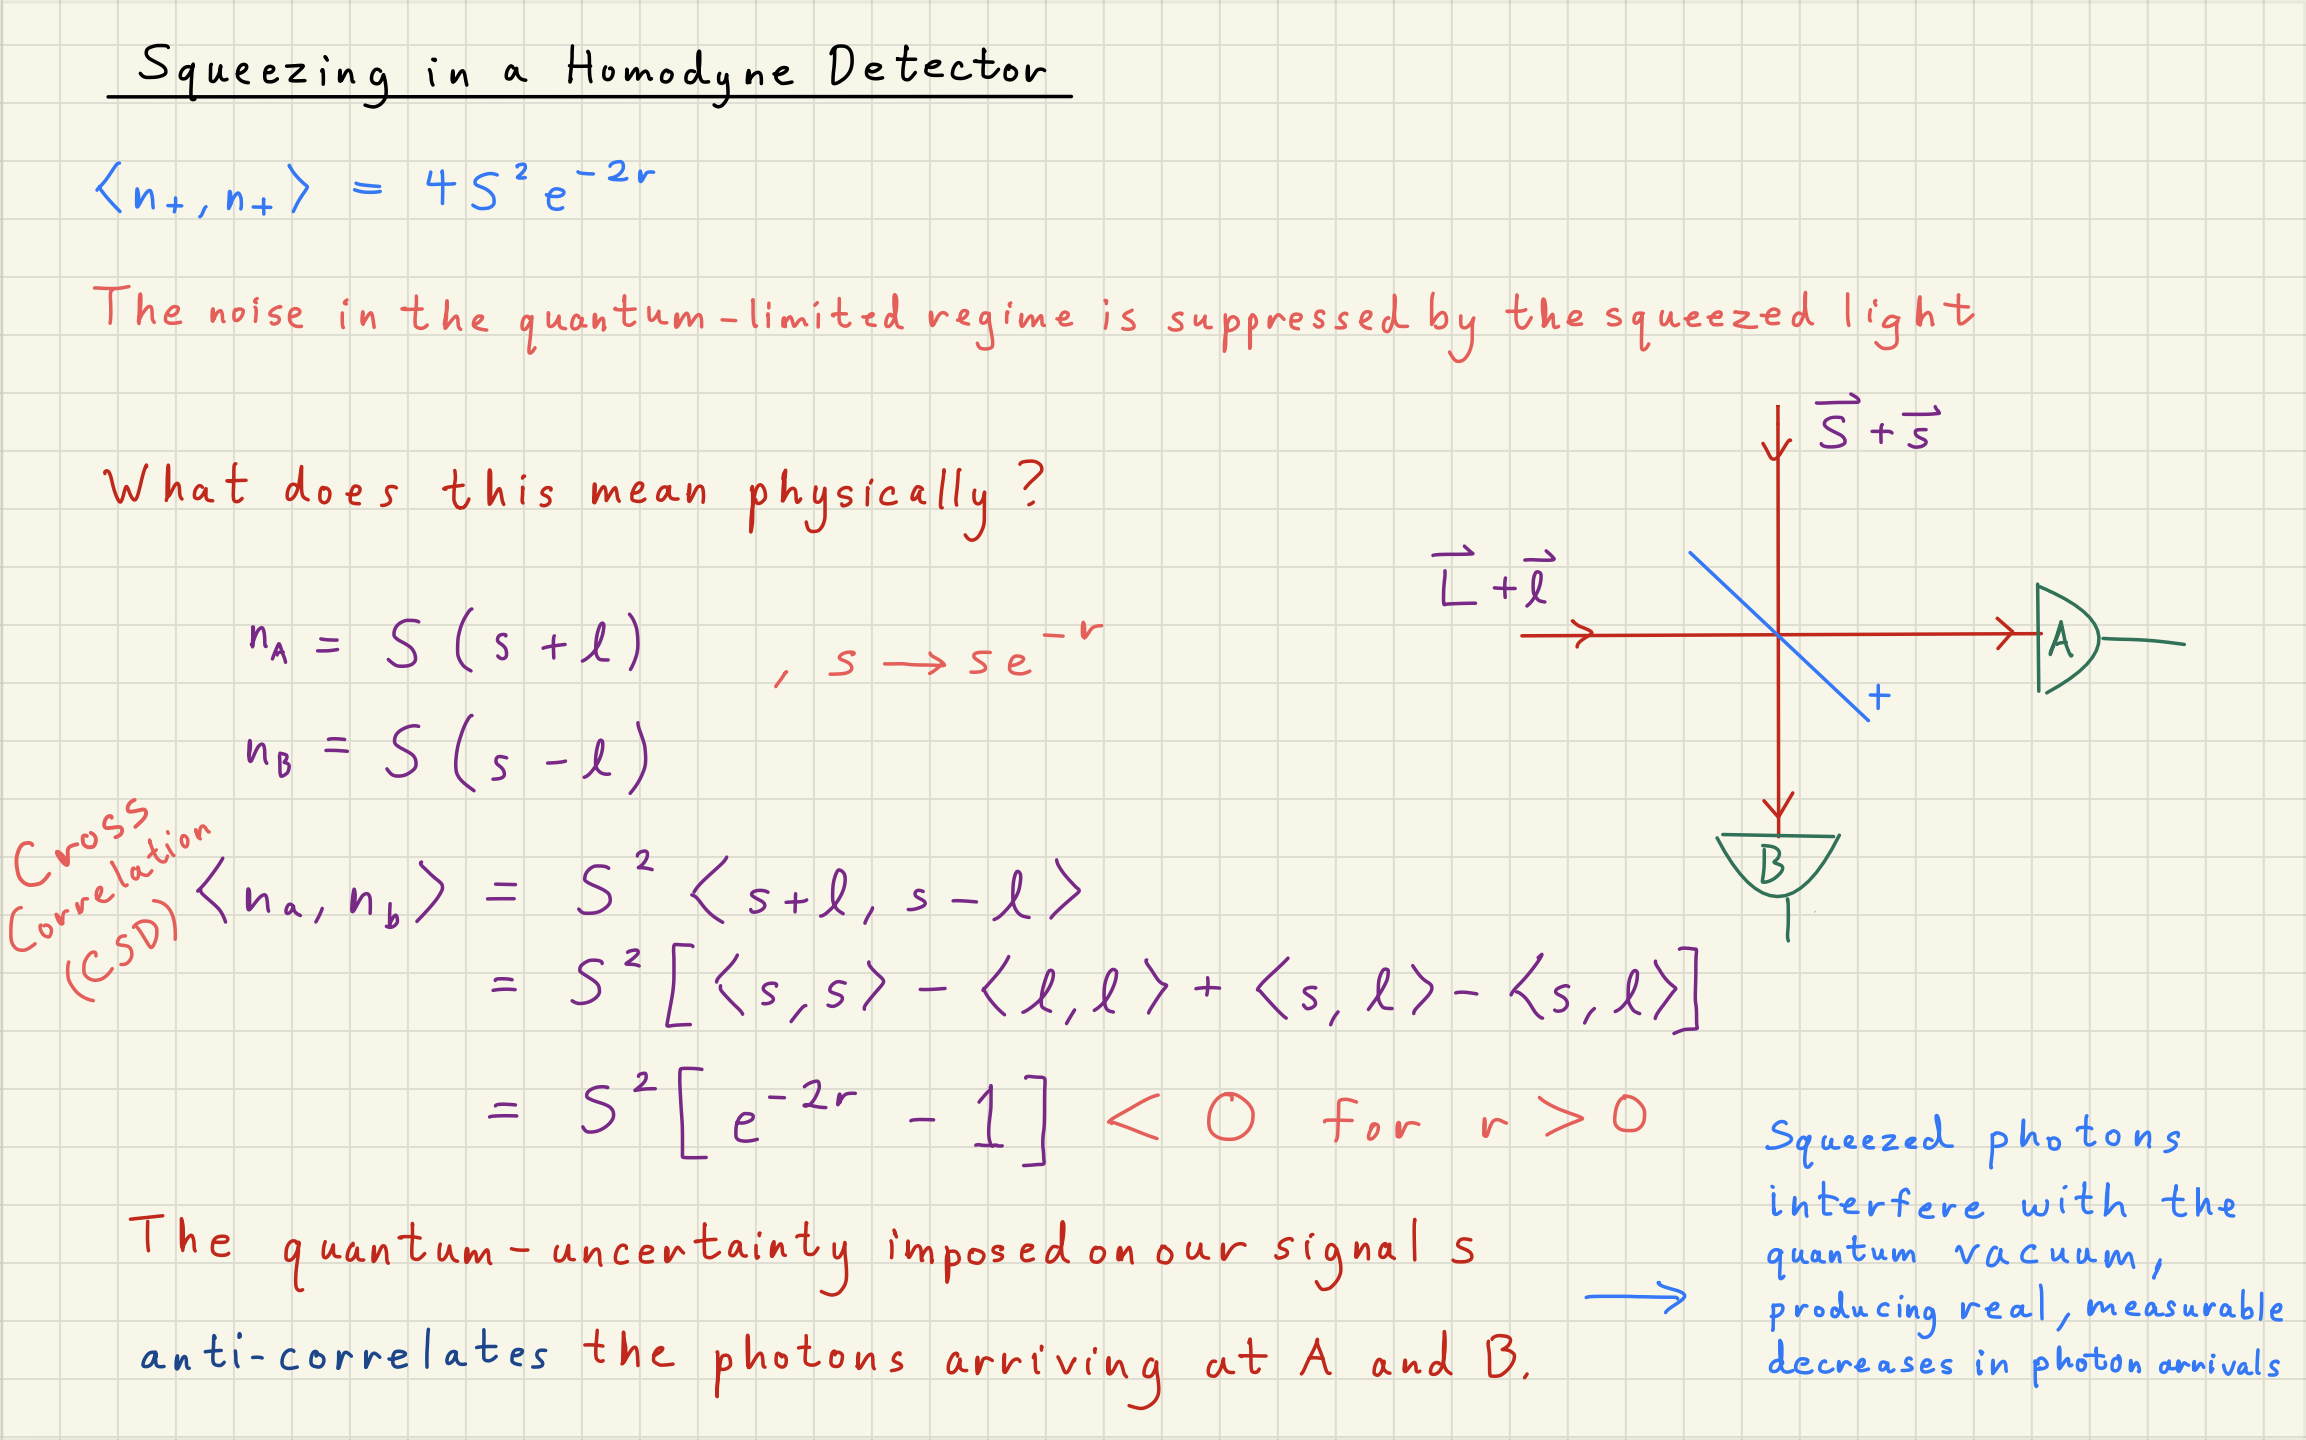 Squeezing in a Homodyne Detector
⟨n₊, n₊⟩ = 4S²e⁻²ʳ
The noise in the quantum-limited regime is suppressed by the squeezed light
S⃗ + s⃗
What does this mean physically?
L⃗ + l⃗
n_A = S(s + l) , s → se⁻ʳ
A
+
n_B = S(s - l)
B
Cross
Correlation
(CSD)
⟨n_a, n_b⟩ = S²⟨s+l, s-l⟩
= S²[⟨s,s⟩ - ⟨l,l⟩ + ⟨s,l⟩ - ⟨s,l⟩]
= S²[e⁻²ʳ - 1] < 0 for r > 0
The quantum-uncertainty imposed on our signal s
anti-correlates the photons arriving at A and B.
→ Squeezed photons
interfere with the
quantum vacuum,
producing real, measurable
decreases in photon arrivals